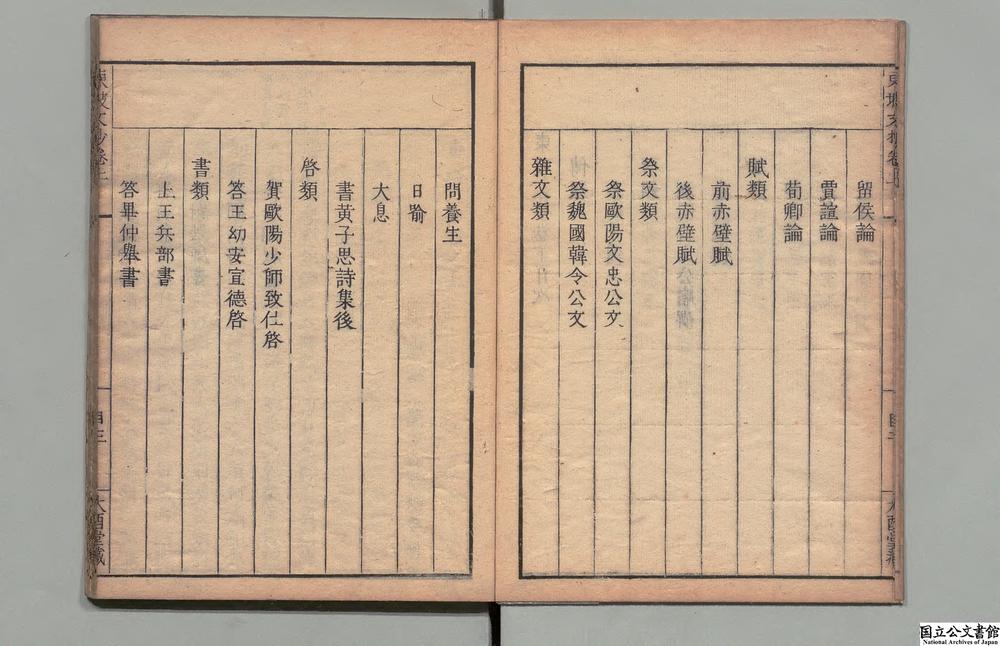 留侯論
賈誼論
荀卿論
賦類
前赤壁賦
後赤壁賦
祭文類
祭歐陽文忠公文
祭魏國韓令公文
雜文類
問養生
日喻
大息
書黃子思詩集後
啓類
賀歐陽少師致仕啓
答王幼安宣德啓
書類
上王兵部書
答畢仲舉書
東坡文抄卷上
目三
大酉堂藏
国立公文書館
National Archives of Japan